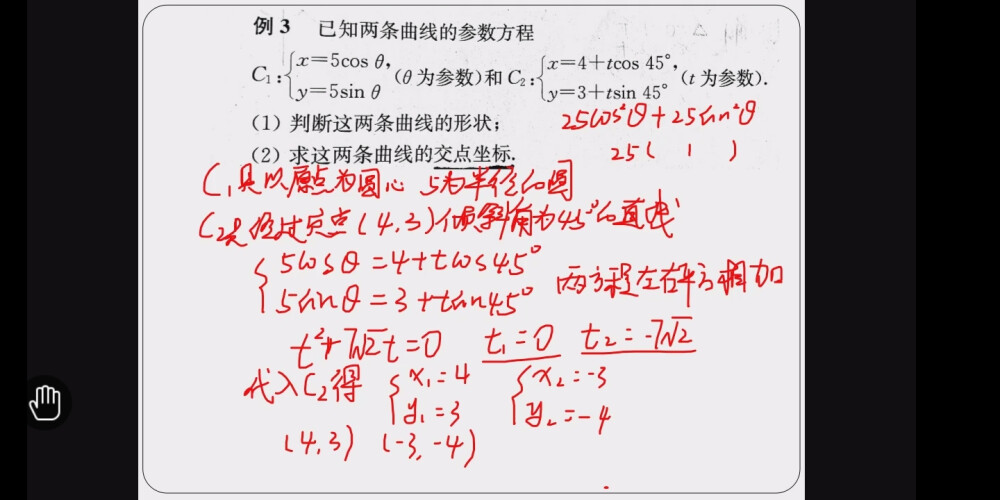 例3 已知两条曲线的参数方程
C₁:{x=5cos θ, y=5sin θ (θ为参数)和 C₂:{x=4+tcos 45°, y=3+tsin 45° (t为参数).
(1) 判断这两条曲线的形状;
25cos²θ+25sin²θ
(2) 求这两条曲线的交点坐标.
25( 1 )
C₁是以原点为圆心 5为半径的圆
C₂是经过定点(4,3)倾斜角为45°的直线
{5cosθ=4+tcos45°
5sinθ=3+tsin45° 两方程左右平方相加
t²+7√2t=0 t₁=0 t₂=-7√2
代入C₂得 {x₁=4 y₁=3 {x₂=-3 y₂=-4
(4,3) (-3,-4)